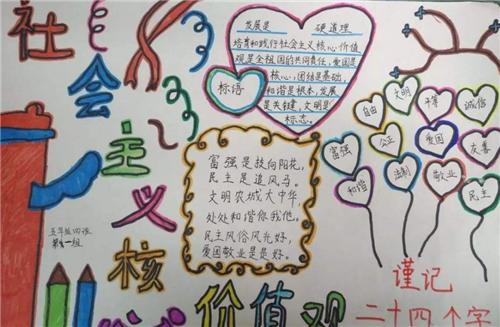 社会主义核心
价值观
发展是 硬道理
培育和践行社会主义核心价值
观是全祖国的共同责任,爱国是
核心,团结是基础,
和谐是根本,发展
是关键,文明是
标态。
标语
富强是扶向阳花,
民主是追风马。
文明农城大中华,
处处和谐你我他。
民主风俗风光好,
爱国敬业是最好。
五年级四班
第 一组
自由
文明
平等
诚信
富强
公正
爱国
友善
和谐
法制
敬业
民主
谨记
二十四个字